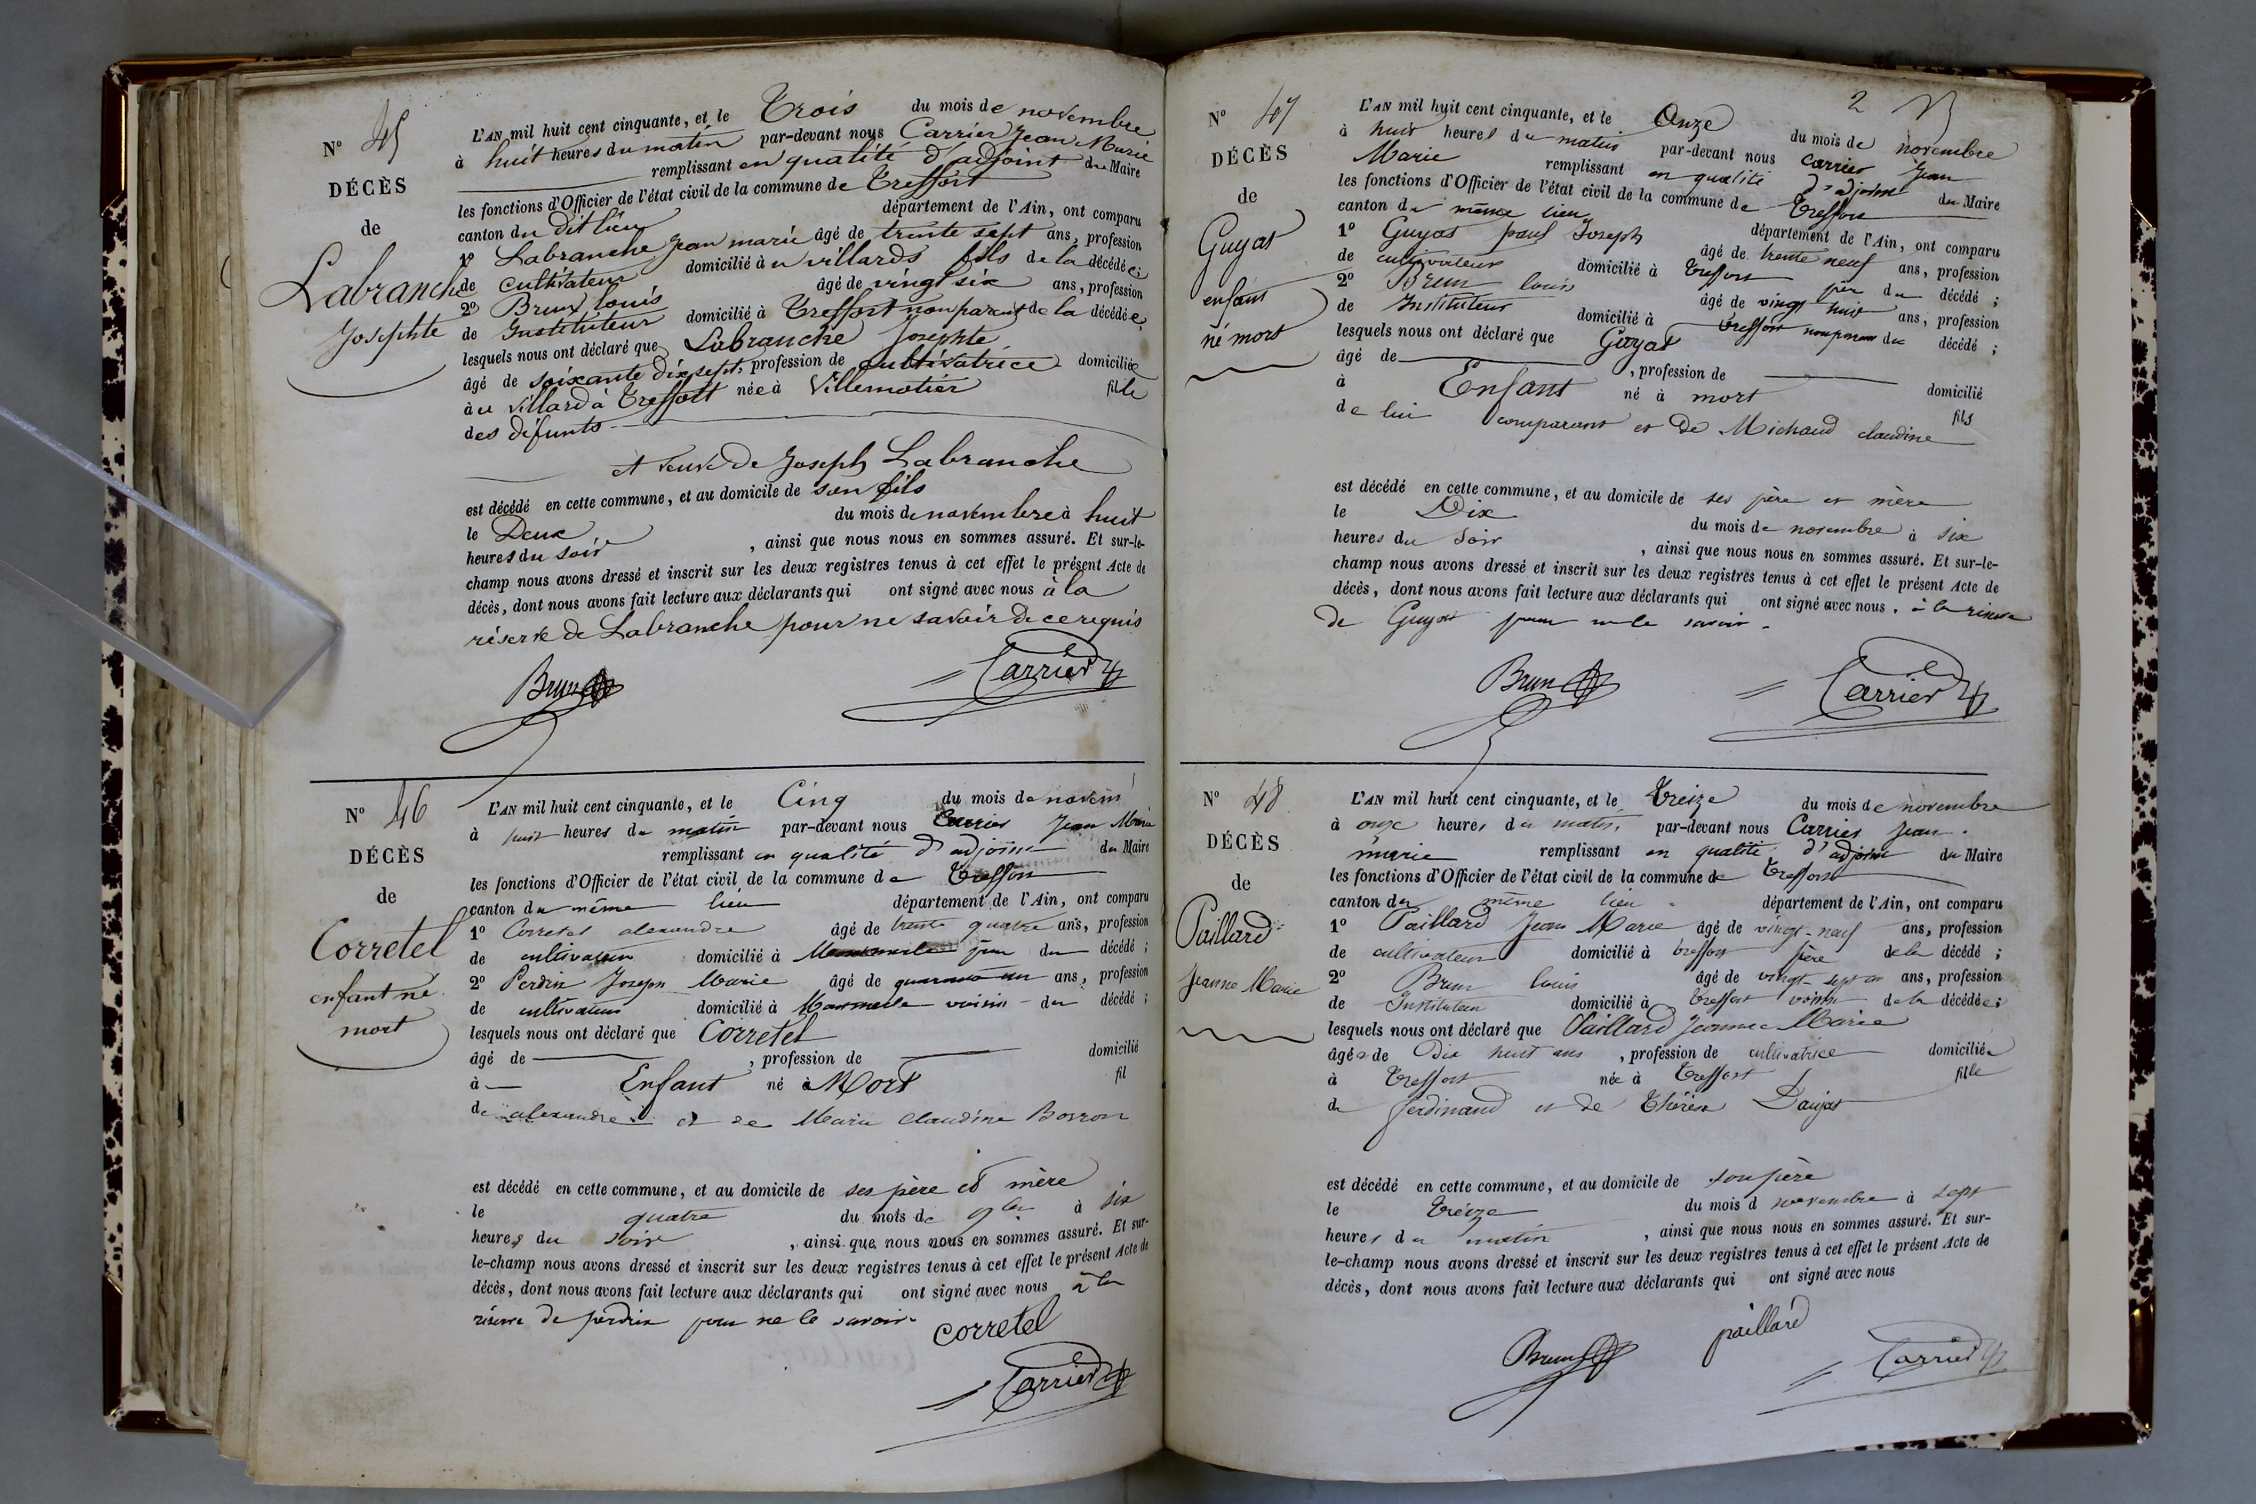 N° 45
DÉCÈS
de
Labranche
Josephte
L'AN mil huit cent cinquante, et le Trois du mois de novembre
à huit heures du matin par-devant nous Carrier Jean Marie
remplissant en qualité d'adjoint du Maire
les fonctions d'Officier de l'état civil de la commune de Treffort
canton du dit lieu département de l'Ain, ont comparu
1° Labranche Jean marie âgé de trente sept ans, profession
de cultivateur domicilié à u villards fils de la décédée;
2° Brun louis âgé de vingt six ans, profession
de Instituteur domicilié à Treffort non parent de la décédée;
lesquels nous ont déclaré que Labranche Josephte
âgé de soixante dix sept, profession de cultivatrice domiciliée
à u villard à Treffort née à Villemotier fille
des défunts
et veuve de Joseph Labranche
est décédé en cette commune, et au domicile de son fils
le Deux du mois de novembre à huit
heures du soir, ainsi que nous nous en sommes assuré. Et sur-le-
champ nous avons dressé et inscrit sur les deux registres tenus à cet effet le présent Acte de
décès, dont nous avons fait lecture aux déclarants qui ont signé avec nous à la
réserve de Labranche pour ne savoir de ce requis
Brun Carrier
N° 46
DÉCÈS
de
Corretel
enfant né
mort
L'AN mil huit cent cinquante, et le Cinq du mois de novem
à huit heures du matin par-devant nous Carrier Jean Marie
remplissant en qualité d'adjoint du Maire
les fonctions d'Officier de l'état civil de la commune de Treffort
canton du même lieu département de l'Ain, ont comparu
1° Corretel alexandre âgé de trente quatre ans, profession
de cultivateur domicilié à père du décédé;
2° Perdrix Joseph Marie âgé de ans, profession
de cultivateur domicilié à voisin du décédé;
lesquels nous ont déclaré que Corretel
âgé de , profession de domicilié
à Enfant né à Mort fil
de alexandre et de Marie Claudine Borron
est décédé en cette commune, et au domicile de ses père et mère
le quatre du mois de 9bre à six
heures du soir, ainsi que nous nous en sommes assuré. Et sur-
le-champ nous avons dressé et inscrit sur les deux registres tenus à cet effet le présent Acte de
décès, dont nous avons fait lecture aux déclarants qui ont signé avec nous à la
réserve de perdrix pour ne le savoir.
corretel
Carrier
2
N° 47
DÉCÈS
de
Guyat
enfant
né mort
L'AN mil huit cent cinquante, et le Onze du mois de novembre
à huit heures du matin par-devant nous Carrier Jean
Marie remplissant en qualité d'adjoint du Maire
les fonctions d'Officier de l'état civil de la commune de Treffort
canton du même lieu département de l'Ain, ont comparu
1° Guyat Joseph âgé de trente neuf ans, profession
de cultivateur domicilié à Treffort père du décédé;
2° Brun louis âgé de vingt huit ans, profession
de Instituteur domicilié à Treffort non parent du décédé;
lesquels nous ont déclaré que Guyat
âgé de , profession de domicilié
à Enfant né à mort fils
de lui comparant et de Michaud claudine
est décédé en cette commune, et au domicile de ses père et mère
le Dix du mois de novembre à six
heures du Soir, ainsi que nous nous en sommes assuré. Et sur-le-
champ nous avons dressé et inscrit sur les deux registres tenus à cet effet le présent Acte de
décès, dont nous avons fait lecture aux déclarants qui ont signé avec nous. à la réserve
de Guyat pour ne le savoir.
Brun Carrier
N° 48
DÉCÈS
de
Paillard
Jeanne Marie
L'AN mil huit cent cinquante, et le Treize du mois de novembre
à onze heures du matin, par-devant nous Carrier Jean
marie remplissant en qualité d'adjoint du Maire
les fonctions d'Officier de l'état civil de la commune de Treffort
canton du même lieu département de l'Ain, ont comparu
1° Paillard Jean Marie âgé de vingt-neuf ans, profession
de cultivateur domicilié à treffort frère de la décédé;
2° Brun louis âgé de vingt-sept ans, profession
de Instituteur domicilié à Treffort voisin de la décédée;
lesquels nous ont déclaré que Paillard Jeanne Marie
âgée de Dix huit ans, profession de cultivatrice domiciliée
à Treffort née à Treffort fille
de ferdinand et de Thérèse Daujat
est décédé en cette commune, et au domicile de son père
le treize du mois d novembre à sept
heures du matin, ainsi que nous nous en sommes assuré. Et sur-
le-champ nous avons dressé et inscrit sur les deux registres tenus à cet effet le présent Acte de
décès, dont nous avons fait lecture aux déclarants qui ont signé avec nous
Brun paillard Carrier